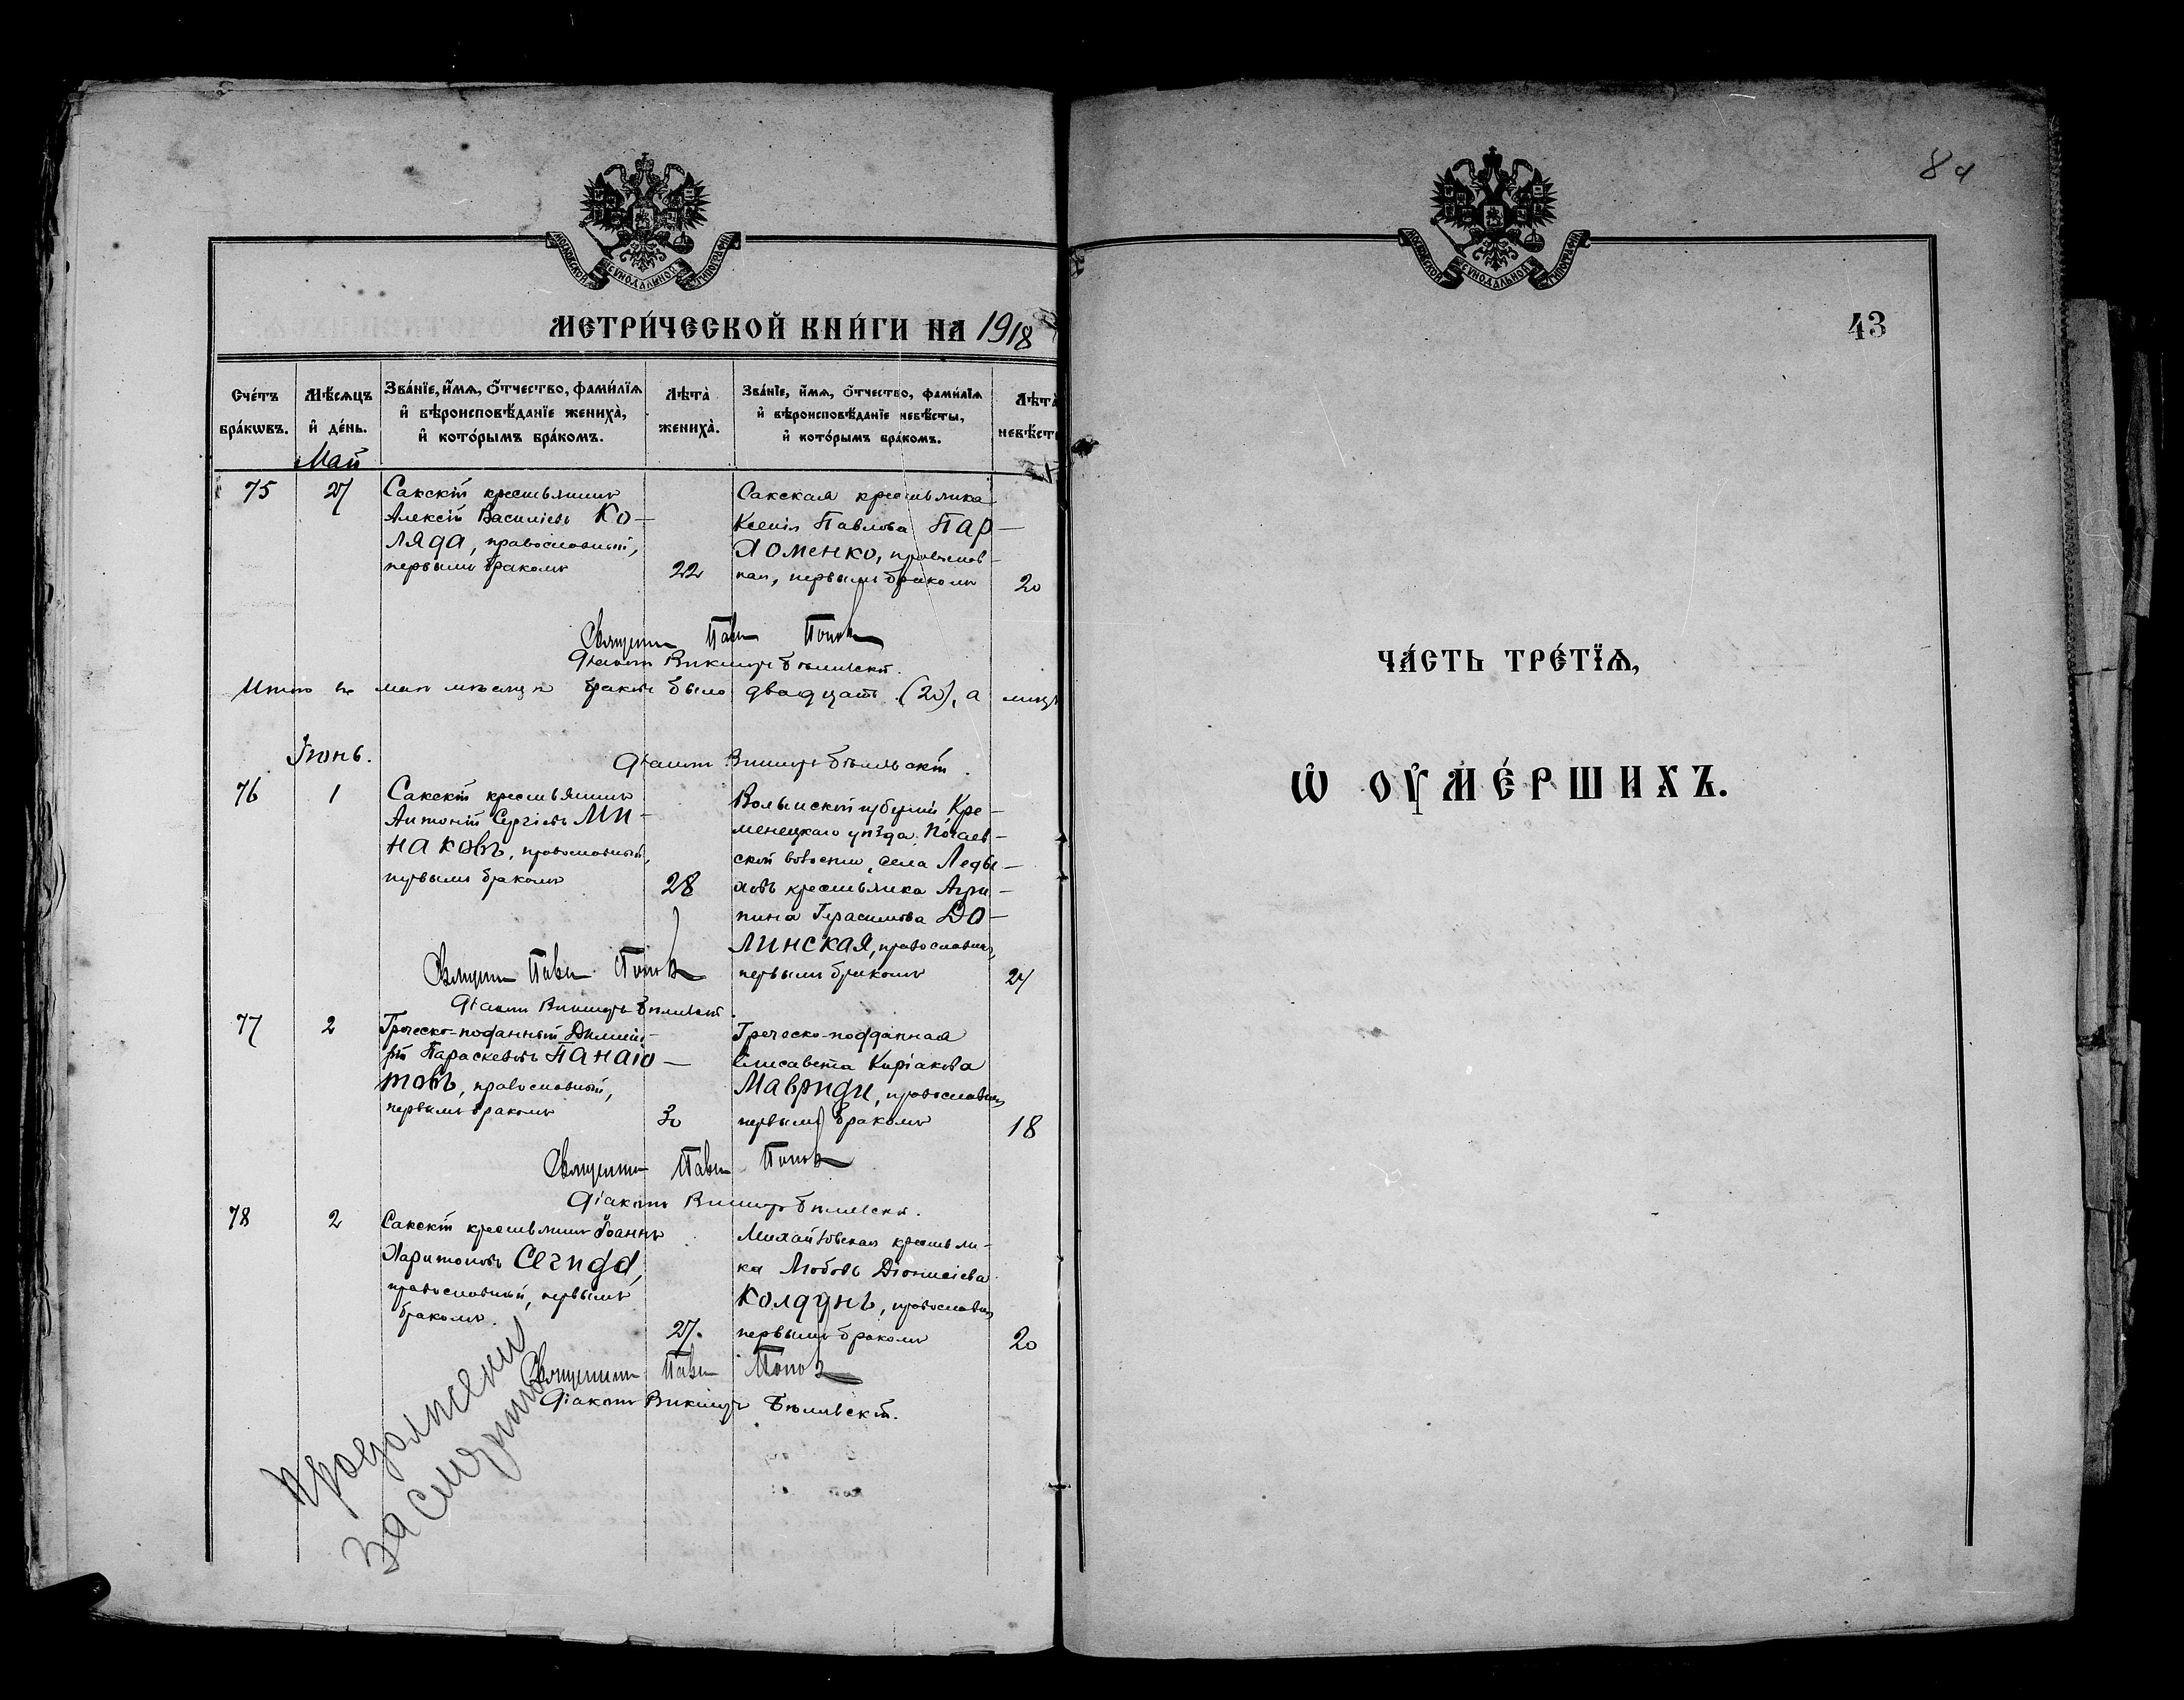 МОСКОВСКОЙ СѴНОДАЛЬНОЙ ТИПОГРАФІИ
МЕТРИ́ЧЕСКОЙ КНИ́ГИ НА 1918
Сче́тъ бра́кωвъ.
Мѣ́сѧцъ и҆ де́нь.
Зва́нїе, и҆́мѧ, ѻ҆́тчество, фами́лїѧ
и҆ вѣроисповѣ́данїе жениха̀,
и҆ кото́рымъ бра́комъ.
Лѣта̀ жениха̀.
Зва́нїе, и҆́мѧ, ѻ҆́тчество, фами́лїѧ
и҆ вѣроисповѣ́данїе невѣ́сты,
и҆ кото́рымъ бра́комъ.
Лѣта̀ невѣ́ст
Май
75
27
Сакскій крестьянинъ
Алексій Василіевъ Ко-
ляда, православный,
первымъ бракомъ
22
Сакская крестьянка
Ксенія Павлова Пар-
хоменко, православ-
ная, первымъ бракомъ
20
Священн Павел Попов
Діаконъ Викторъ Бѣльскій.
Итого въ маѣ мѣсяцѣ браковъ было двадцать (20), а
Іюнь.
Діаконъ Викторъ Бѣльскій.
76
1
Сакскій крестьянинъ
Антоній Сергіевъ Ми-
наковъ, православный,
первымъ бракомъ
28
Волынской губерніи, Кре-
менецкаго уѣзда, Почаев-
ской волости, села Леды-
ховъ крестьянка Агри-
пина Герасимова До-
линская, православная,
первымъ бракомъ
24
Священн Павел Попов
Діаконъ Викторъ Бѣльскій.
77
2
Греческо-поданный Димит-
рій Параскевовъ Панаіо-
товъ, православный,
первымъ бракомъ
30
Греческо-подданная
Елисавета Киріакова
Мавриди, православная,
первымъ бракомъ
18
Священн Павел Попов
Діаконъ Викторъ Бѣльскій.
78
2
Сакскій крестьянинъ Іоаннъ
Харитоновъ Сегида,
православный, первымъ
бракомъ.
27.
Михайловская крестьян-
ка Любовь Діонисіева
Колдунъ, православная,
первымъ бракомъ
20
Священн Павел Попов
Діаконъ Викторъ Бѣльскій.
продолжени
за
МОСКОВСКОЙ СѴНОДАЛЬНОЙ ТИПОГРАФІИ
43
ЧА́СТЬ ТРЕ́ТЇѦ,
Ѡ҆ ОУ҆МЕ́РШИХЪ.